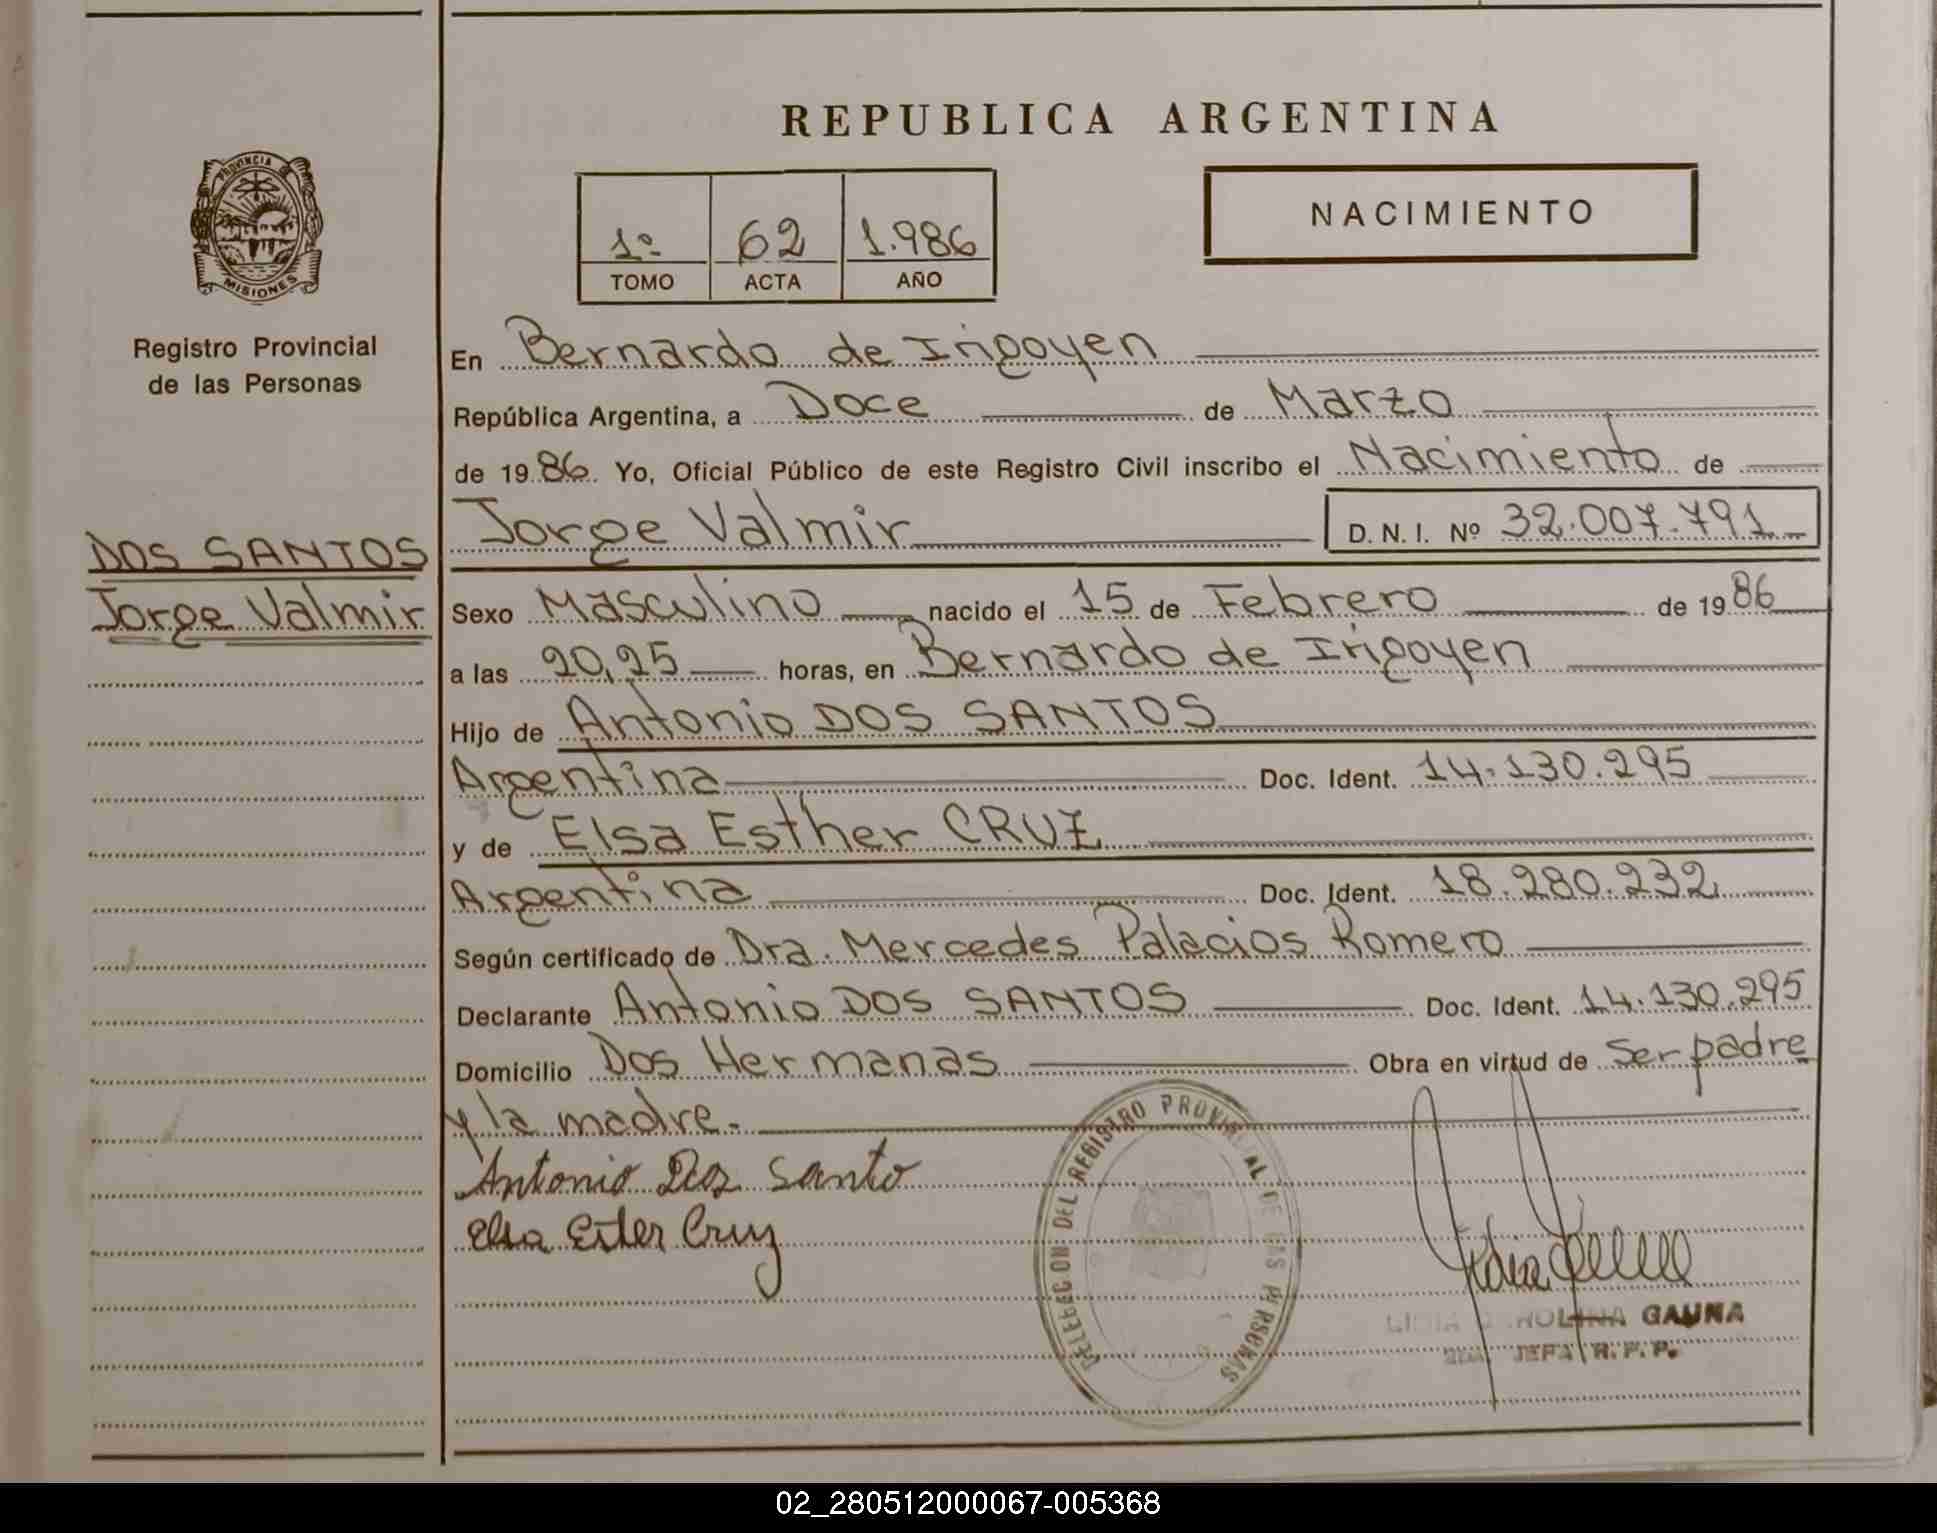 REPUBLICA ARGENTINA
PROVINCIA DE MISIONES
Registro Provincial
de las Personas
DOS SANTOS
Jorge Valmir
1º 62 1.986
TOMO ACTA AÑO
NACIMIENTO
En Bernardo de Irigoyen
República Argentina, a Doce de Marzo
de 1986. Yo, Oficial Público de este Registro Civil inscribo el Nacimiento de
Jorge Valmir D.N.I. Nº 32.007.791
Sexo Masculino nacido el 15 de Febrero de 1986
a las 20,25 horas, en Bernardo de Irigoyen
Hijo de Antonio DOS SANTOS
Argentina Doc. Ident. 14.130.295
y de Elsa Esther CRUZ
Argentina Doc. Ident. 18.280.232
Según certificado de Dra. Mercedes Palacios Romero
Declarante Antonio DOS SANTOS Doc. Ident. 14.130.295
Domicilio Dos Hermanas Obra en virtud de Ser padre
y la madre.
Antonio Dos Santo
Elsa Ester Cruz
DELEGACION DEL REGISTRO PROVINCIAL DE LAS PERSONAS
GAUNA
JEFA R.P.P.
02_280512000067-005368